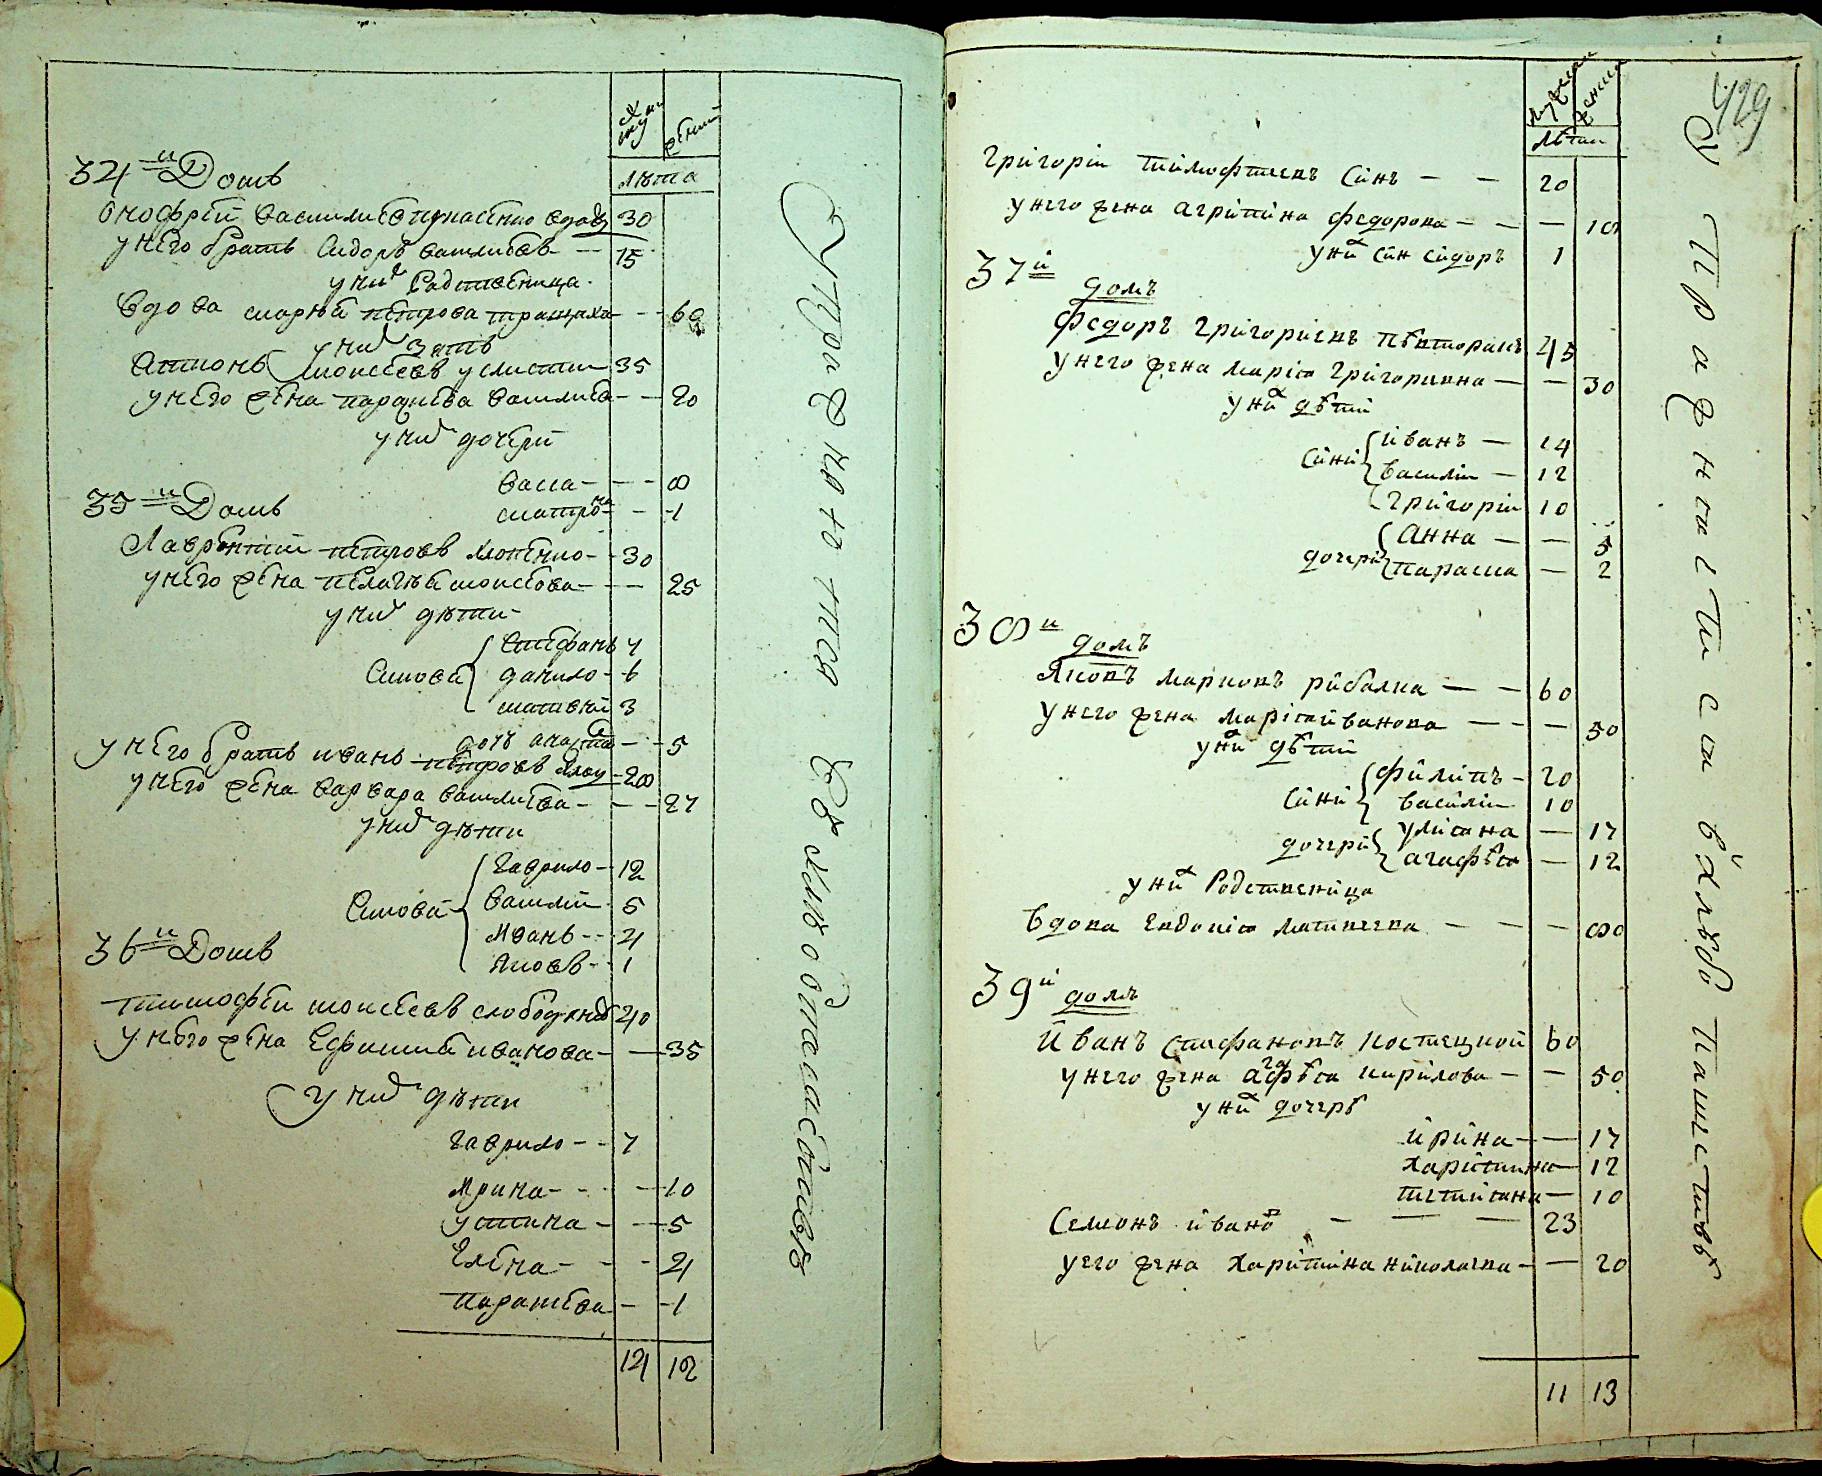 мужки женски
лѣта
34й Домъ
Онофрѣй Василиевъ вдовъ 30
у нѣго братъ Сидоръ Василиевъ — 15
у них Родствѣница
Вдова Марѣя пѣтрова — — 60
у них зять
Антонъ Моисѣевъ 35
у нѣго жѣна параскѣва Василиева — — 20
у них дочѣри
Васса — — — 8
матрона — — 1
35й Домъ
Лаврѣнтий пѣтровъ — 30
у нѣго жѣна пѣлагѣя моисѣова — — — 25
у них дѣти
Синовѣ Стѣфанъ 7
данило — 6
матвѣй 3
дочъ анастасѣ — — 5
у нѣго братъ иванъ пѣтровъ — 28
у нѣго жѣна варвара василиѣва — — — 27
у них дѣти
Синовѣ Гаврило — 12
Василѣй 5
Иванъ — 4
Яковъ — 1
36й Домъ
тимофѣй моисѣевъ 40
у нѣго жѣна Ефимия иванова — — 35
у них дѣти
Гаврило — — 7
Ирина — — — 10
устина — — 5
Елѣна — — — 4
параскѣва — — 1
14 12
Упражняются въ хлѣбопашествѣ
429
мужски женски
лѣтаи
Григорій тимофѣевъ синъ — — 20
у него жена агрипина федорова — — — 18
у них син сидоръ 1
37й
домъ
федоръ григориевъ 45
у него жена марія григоривна — — 30
у них дѣти
Сини иванъ — 14
василій — 12
григорій 10
дочери Анна — — 5
параска — 2
38й
домъ
Яковъ марковъ рибалка — — 60
у него жена марія иванова — — — 50
у них дѣти
Сини филипъ — 20
василій 10
дочери уліяна — 17
агафѣя — 12
у них Родственица
вдова Евдокія матвѣевна — — — 80
39й
домъ
иванъ стефановъ 60
у него жена агафѣя кирилова — — 50
у них дочерѣ
ирина — — 17
харитина — 12
тетияна — 10
Семионъ иванов — — — 23
у его жена харитина николаева — — 20
11 13
Упражняются в хлѣбопашествѣ